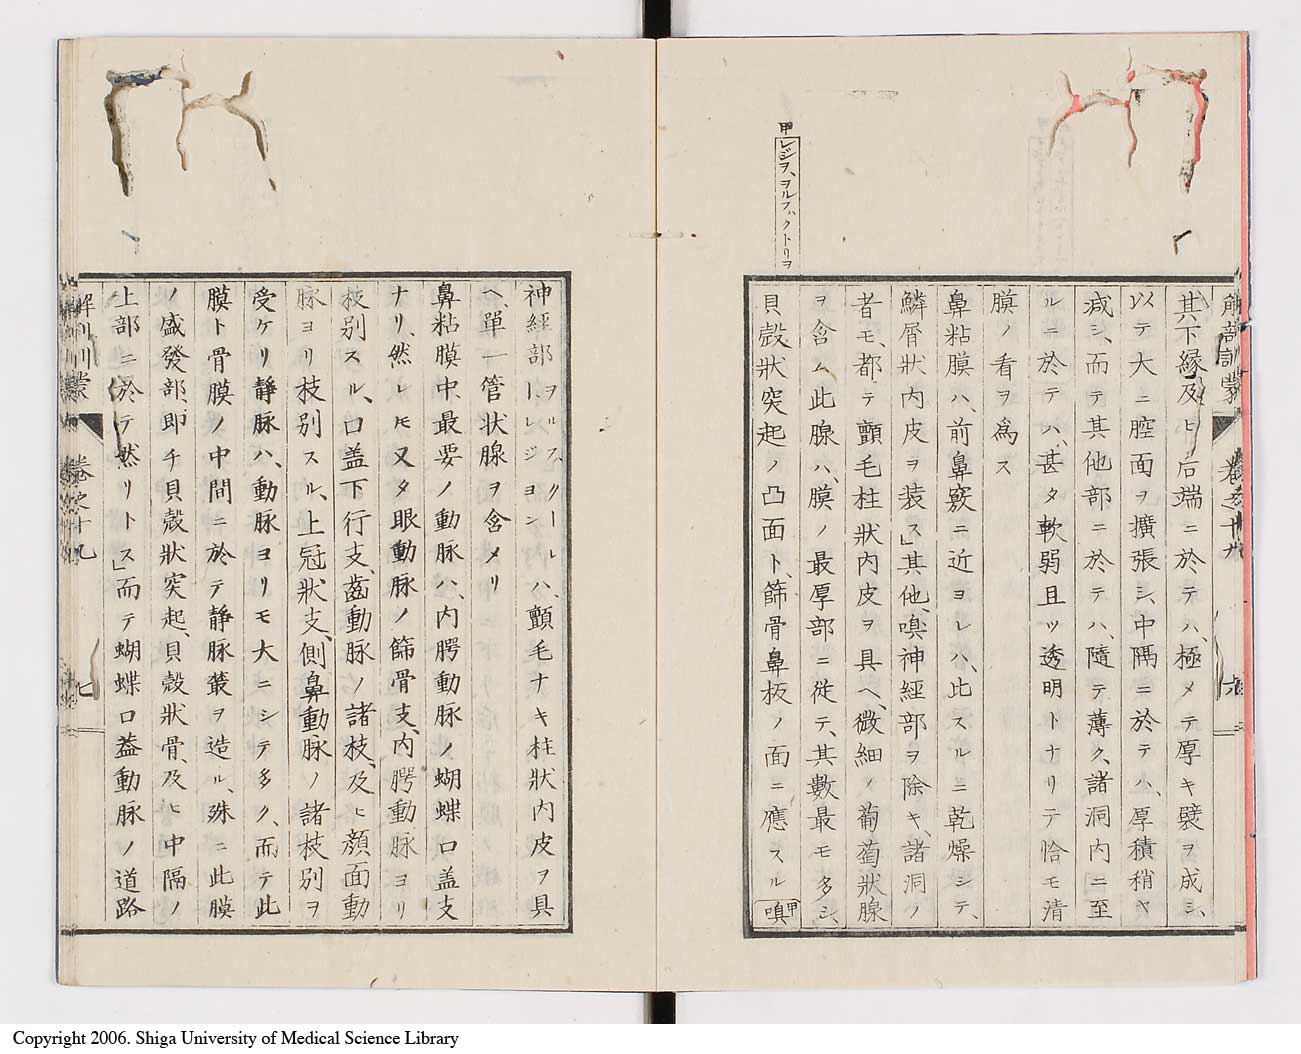 解剖訓蒙 巻之十九 六
其下縁及ヒ后端ニ於テハ、極メテ厚キ襞ヲ成シ、
以テ大ニ腔面ヲ擴張シ、中隔ニ於テハ、厚積稍ヤ
减シ、而テ其他部ニ於テハ、隨テ薄ク、諸洞内ニ至
ルニ於テハ、甚タ軟弱且ツ透明トナリテ恰モ清
膜ノ看ヲ為ス
鼻粘膜ハ、前鼻竅ニ近ヨレハ、此スルミ乾燥シテ、
鱗屑狀内皮ヲ装ス」其他、嗅神經部ヲ除キ、諸洞ノ
者モ、都テ顫毛柱狀内皮ヲ具ヘ、微細ノ葡萄狀腺
ヲ含ム此腺ハ、膜ノ最厚部ニ従テ、其數最モ多シ、
貝殻狀突起ノ凸面ト、篩骨鼻板ノ面ニ應スル甲嗅
甲レジヲ、ヲルフハクトリヲ
神經部ヲルフハクトール、レジヨンハ、顫毛ナキ柱狀内皮ヲ具
ヘ、單一管状腺ヲ含メリ
鼻粘膜中、最要ノ動脈ハ、内腭動脈ノ蝴蝶口盖支
ナリ、然レ𪜈又タ眼動脈ノ篩骨支、内腭動脈ヨリ
枝別スル、口盖下行支、齒動脈ノ諸枝、及ヒ顔面動
脉ヨリ枝別スル、上冠狀支、側鼻動脈ノ諸枝別ヲ
受ケリ靜脉ハ、動脈ヨリモ大ニシテ多ク、而テ此
膜ト骨膜ノ中間ニ於テ靜脈叢ヲ造ル、殊ニ此膜
ノ盛發部、即チ貝殻狀突起、貝殻狀骨、及ヒ中隔ノ
上部ニ於テ然リトス」而テ蝴蝶口葢動脈ノ道路
巻之十九 七
Copyright 2006. Shiga University of Medical Science Library